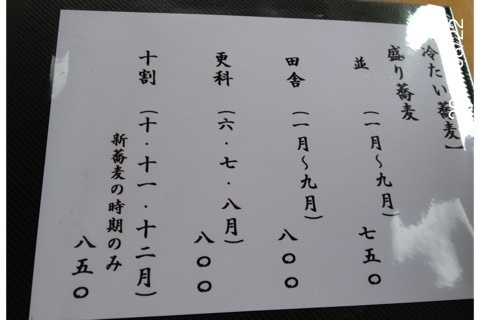 冷たい蕎麦】
盛り蕎麦
並 (一月～九月) 七五〇
田舎 (一月～九月) 八〇〇
更科 (六・七・八月) 八〇〇
十割 (十・十一・十二月)
新蕎麦の時期のみ
八五〇